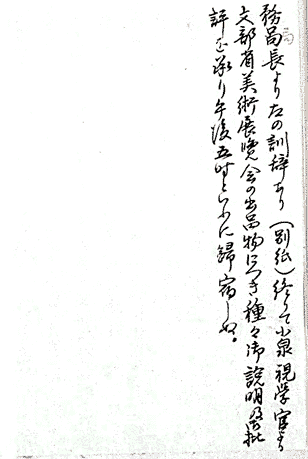 務局長より左の訓辞あり(別紙)終りて小泉視学官より
文部省美術展覧会の出品物につき種々御説明及批
評を承り午後五時といふに帰宿しぬ。